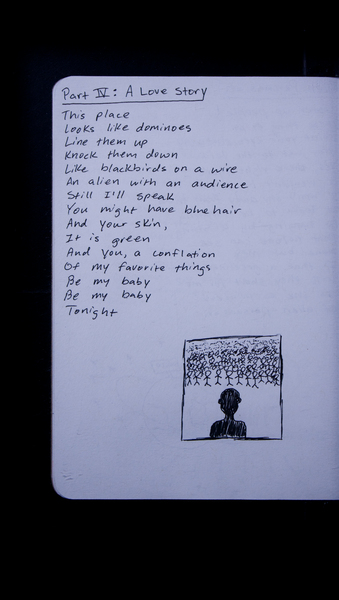 Part IV: A Love Story
This place
Looks like dominoes
Line them up
Knock them down
Like blackbirds on a wire
An alien with an audience
Still I'll speak
You might have blue hair
And your skin,
It is green
And you, a conflation
Of my favorite things
Be my baby
Be my baby
Tonight